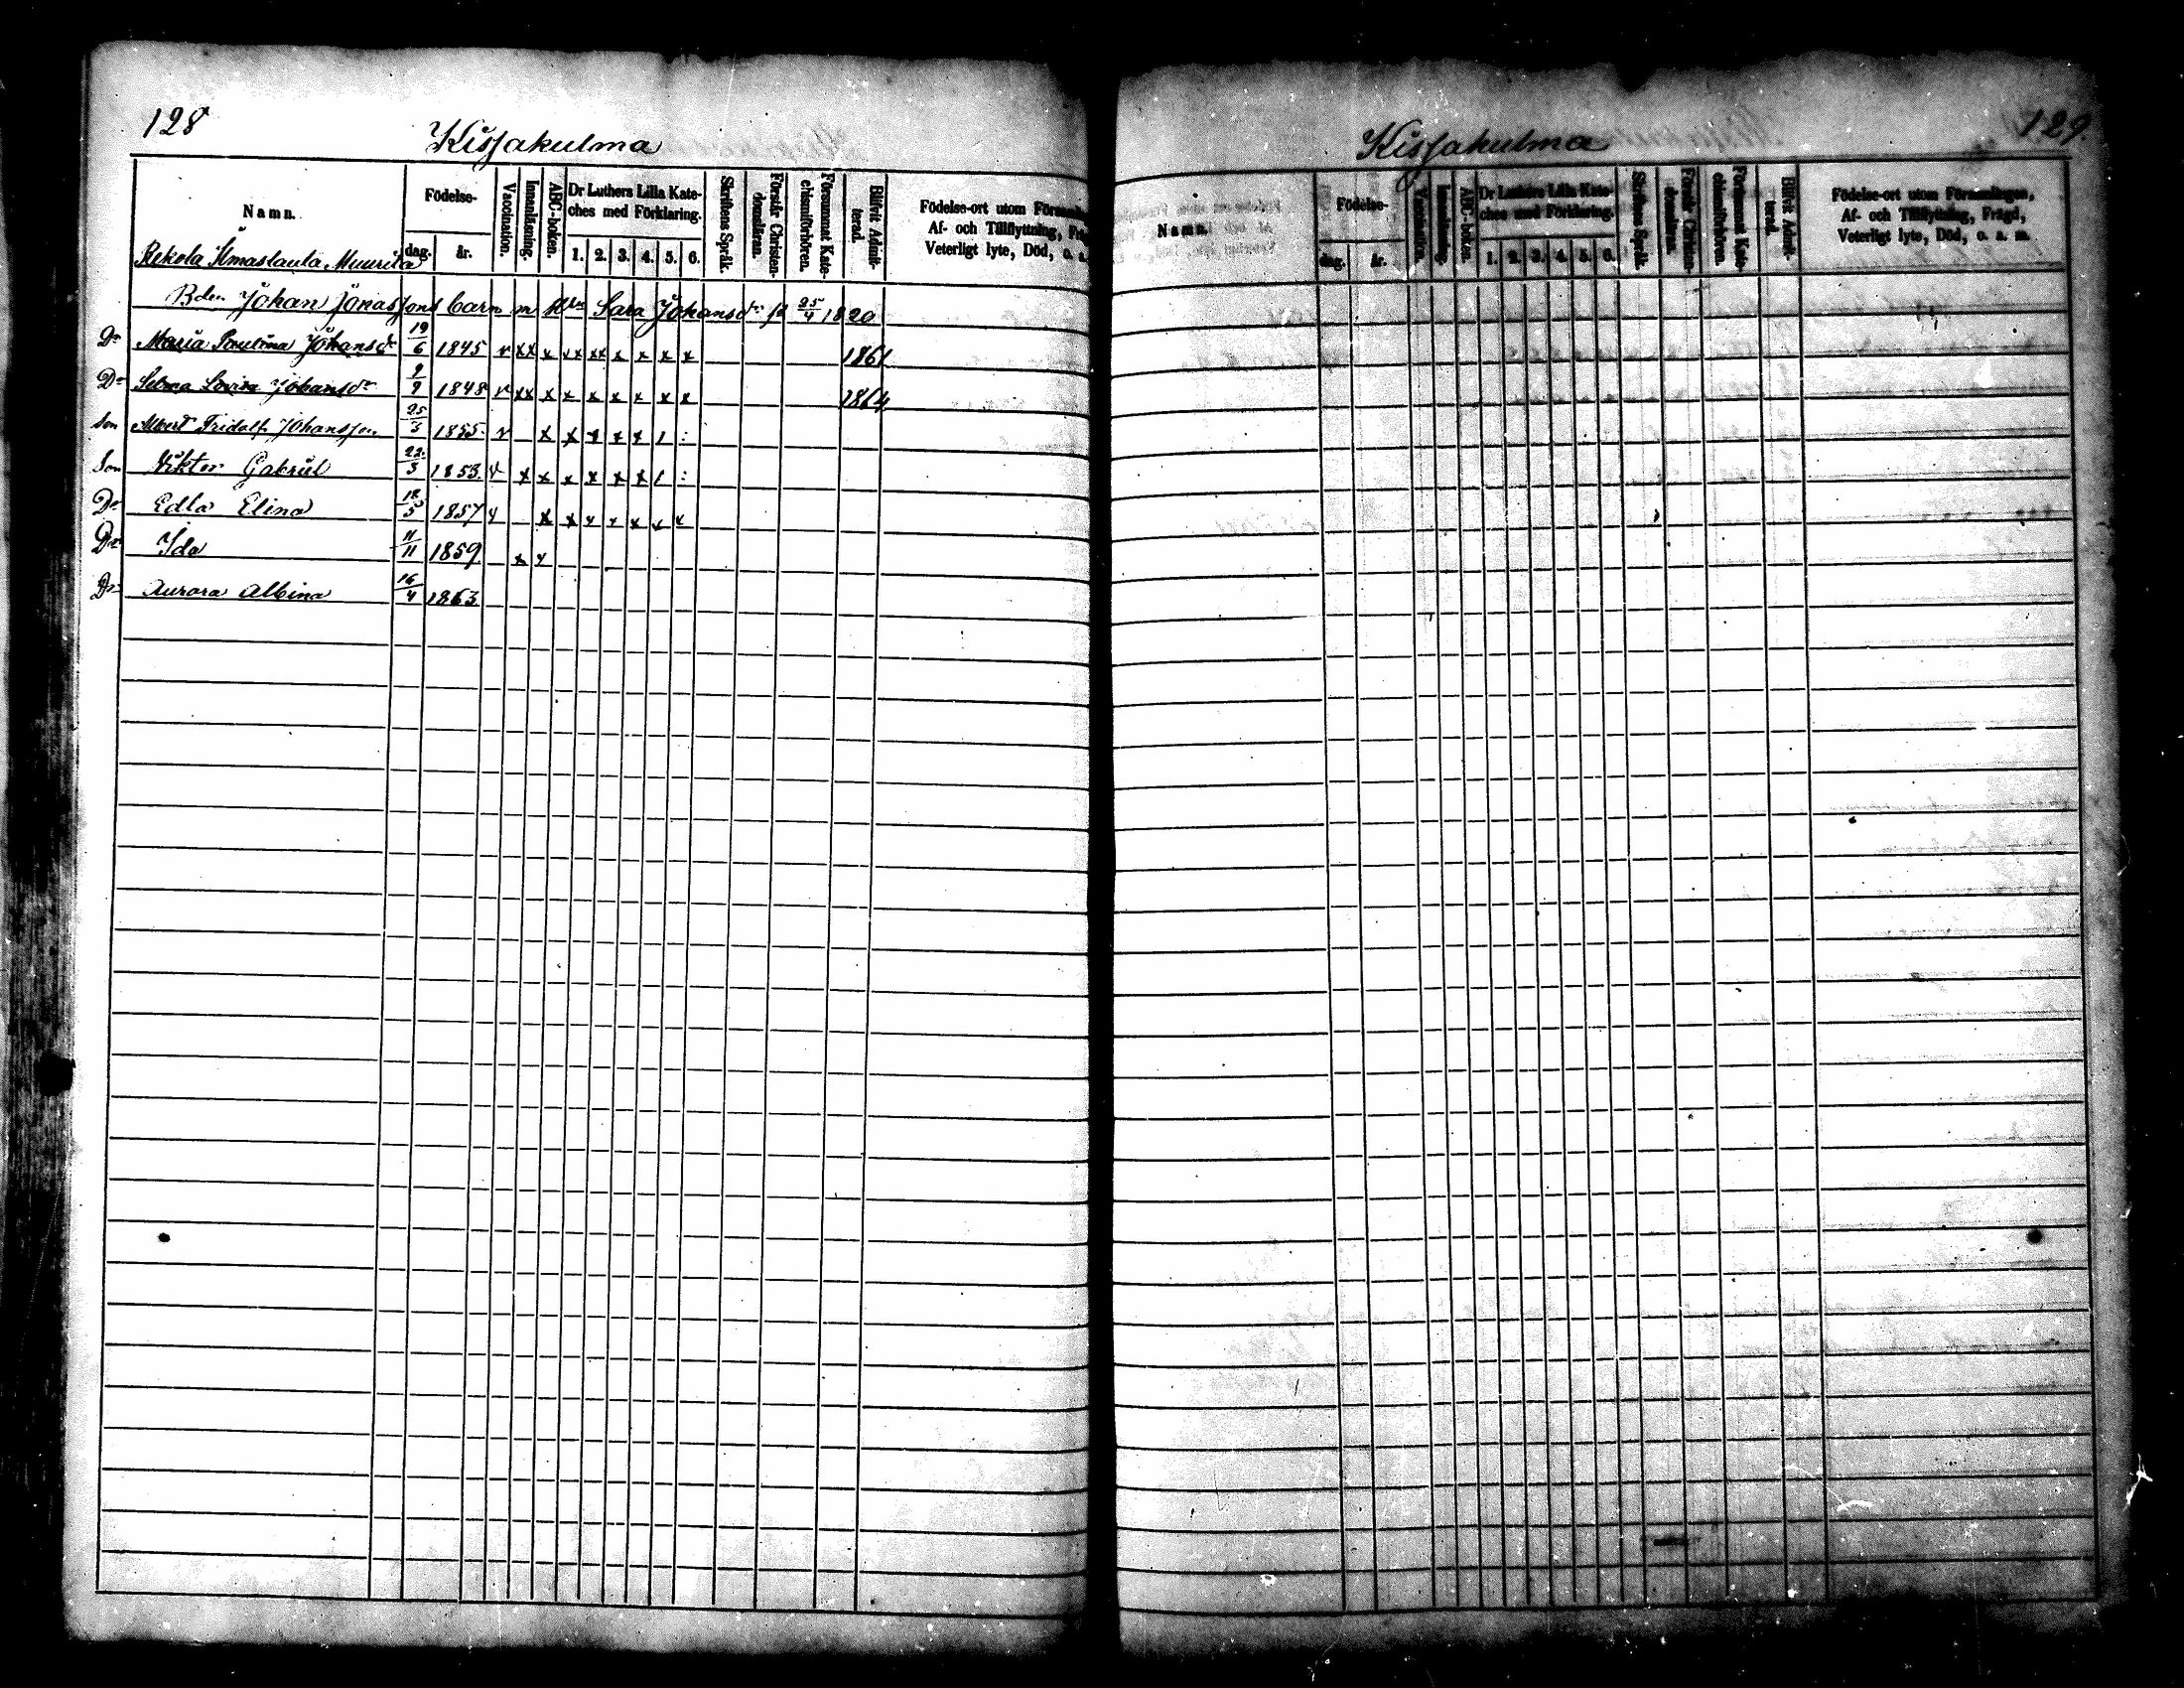 128
Kissakulma
Namn.
Födelse-
dag. år.
Vaccination.
Innanläsning.
ABC-boken.
Dr Luthers Lilla Kate-
ches med Förklaring.
1. 2. 3. 4. 5. 6.
Skriftens Språk.
Förstår Christen-
domsläran.
Försummat Kate-
chismiförhören.
Blifvit Admit-
terad.
Födelse-ort utom
Af- och Tillflyttning,
Veterligt lyte, Död, o. a.
Rekola Ilmastaula Muurila
Bden Johan Jonassons barn m Sara Johansdr 25/4 1820
Dr Maria Johansdr 19/6 1845 v xx x xx xx x x x x 1861
Dr Selma Lovisa Johansdr 9/9 1848 v xx x x x x x x x 1864
Son Albert Fridolf Johansson 25/3 1855 v x x x x x 1 :
Son Viktor Gabriel 22/3 1853 v x x x x x x 1 :
Dr Edla Elina 18/5 1857 v x x x x x x x
Dr Ida 11/11 1859 x x
Dr Aurora Albina 16/4 1863
129.
Kissakulma
Namn.
Födelse-
dag. år.
Vaccination.
Innanläsning.
ABC-boken.
Dr Luthers Lilla Kate-
ches med Förklaring.
1. 2. 3. 4. 5. 6.
Skriftens Språk.
Förstår Christen-
domsläran.
Försummat Kate-
chismiförhören.
Blifvit Admit-
terad.
Födelse-ort utom Församlingen,
Af- och Tillflyttning, Frägd,
Veterligt lyte, Död, o. a. m.